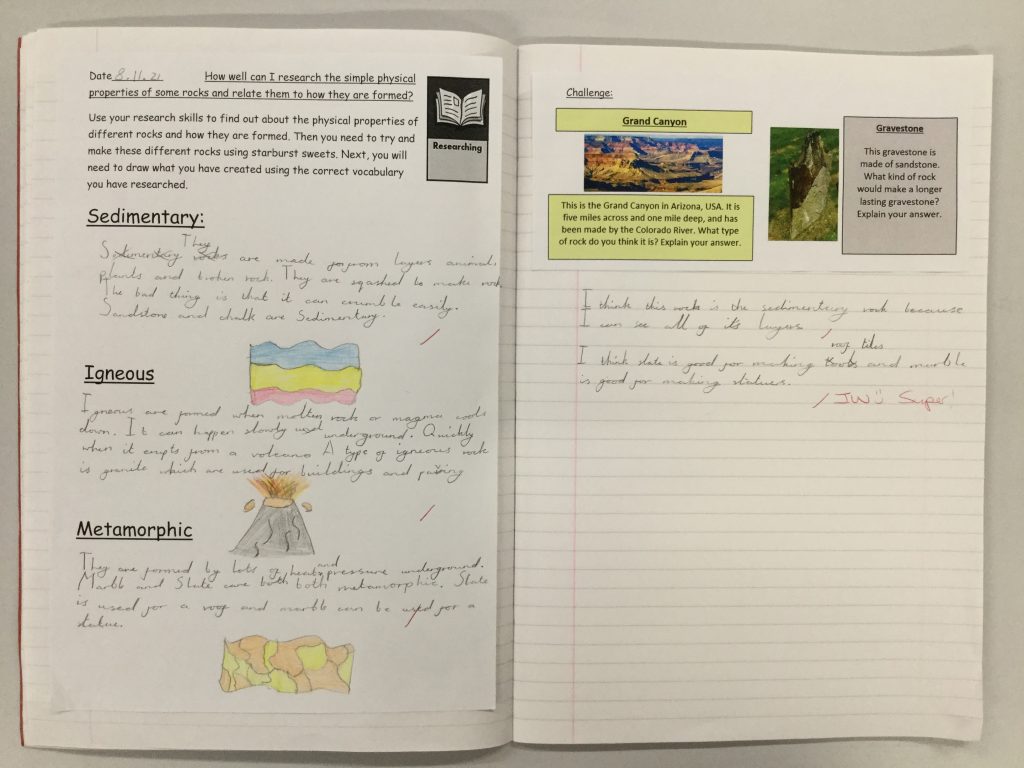 Date 8.11.21 How well can I research the simple physical
properties of some rocks and relate them to how they are formed?
Researching
Use your research skills to find out about the physical properties of
different rocks and how they are formed. Then you need to try and
make these different rocks using starburst sweets. Next, you will
need to draw what you have created using the correct vocabulary
you have researched.
Sedimentary:
They
Sedimentary rocks are made from layers animal,
plants and broken rock. They are sqashed to make rock
The bad thing is that it can crumble easily.
Sandstone and chalk are Sedimentary.
Igneous
Igneous are formed when molten rock or magma cools
down. It can happen slowly underground. Quickly
when it erupts from a volcano A type of igneous rock
is granite which are used for buildings and paving
Metamorphic
They are formed by lots of heat and pressure underground.
Marble and Slate are both metamorphic. Slate
is used for a roof and marble can be used for a
statue.
Challenge:
Grand Canyon
This is the Grand Canyon in Arizona, USA. It is
five miles across and one mile deep, and has
been made by the Colorado River. What type
of rock do you think it is? Explain your answer.
Gravestone
This gravestone is
made of sandstone.
What kind of rock
would make a longer
lasting gravestone?
Explain your answer.
I think this rocks is the sedimentery rock because
I can see all of its layers
roof tiles
I think slate is good for making and marble
is good for making statues.
JW Super!